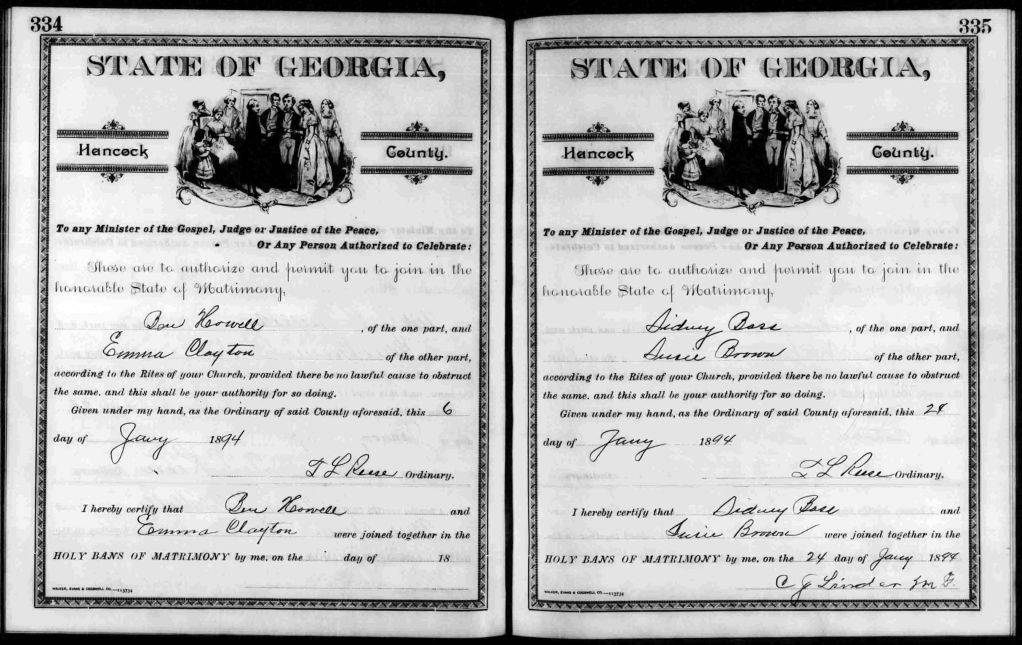 334
STATE OF GEORGIA,
Hancock County.
To any Minister of the Gospel, Judge or Justice of the Peace,
Or Any Person Authorized to Celebrate:
These are to authorize and permit you to join in the
honorable State of Matrimony,
Ben Howell, of the one part, and
Emma Clayton of the other part,
according to the Rites of your Church, provided there be no lawful cause to obstruct
the same, and this shall be your authority for so doing.
Given under my hand, as the Ordinary of said County aforesaid, this 6
day of Jany 1894
L Reese Ordinary.
I hereby certify that Ben Howell and
Emma Clayton were joined together in the
HOLY BANS OF MATRIMONY by me, on the day of 18
WALKER, EVANS & COGSWELL CO.—113734
335
STATE OF GEORGIA,
Hancock County.
To any Minister of the Gospel, Judge or Justice of the Peace,
Or Any Person Authorized to Celebrate:
These are to authorize and permit you to join in the
honorable State of Matrimony,
Sidney Bass, of the one part, and
Susie Brown of the other part,
according to the Rites of your Church, provided there be no lawful cause to obstruct
the same, and this shall be your authority for so doing.
Given under my hand, as the Ordinary of said County aforesaid, this 24
day of Jany 1894
L Reese Ordinary.
I hereby certify that Sidney Bass and
Susie Brown were joined together in the
HOLY BANS OF MATRIMONY by me, on the 24 day of Jany 1894
C J Linder
WALKER, EVANS & COGSWELL CO.—113734